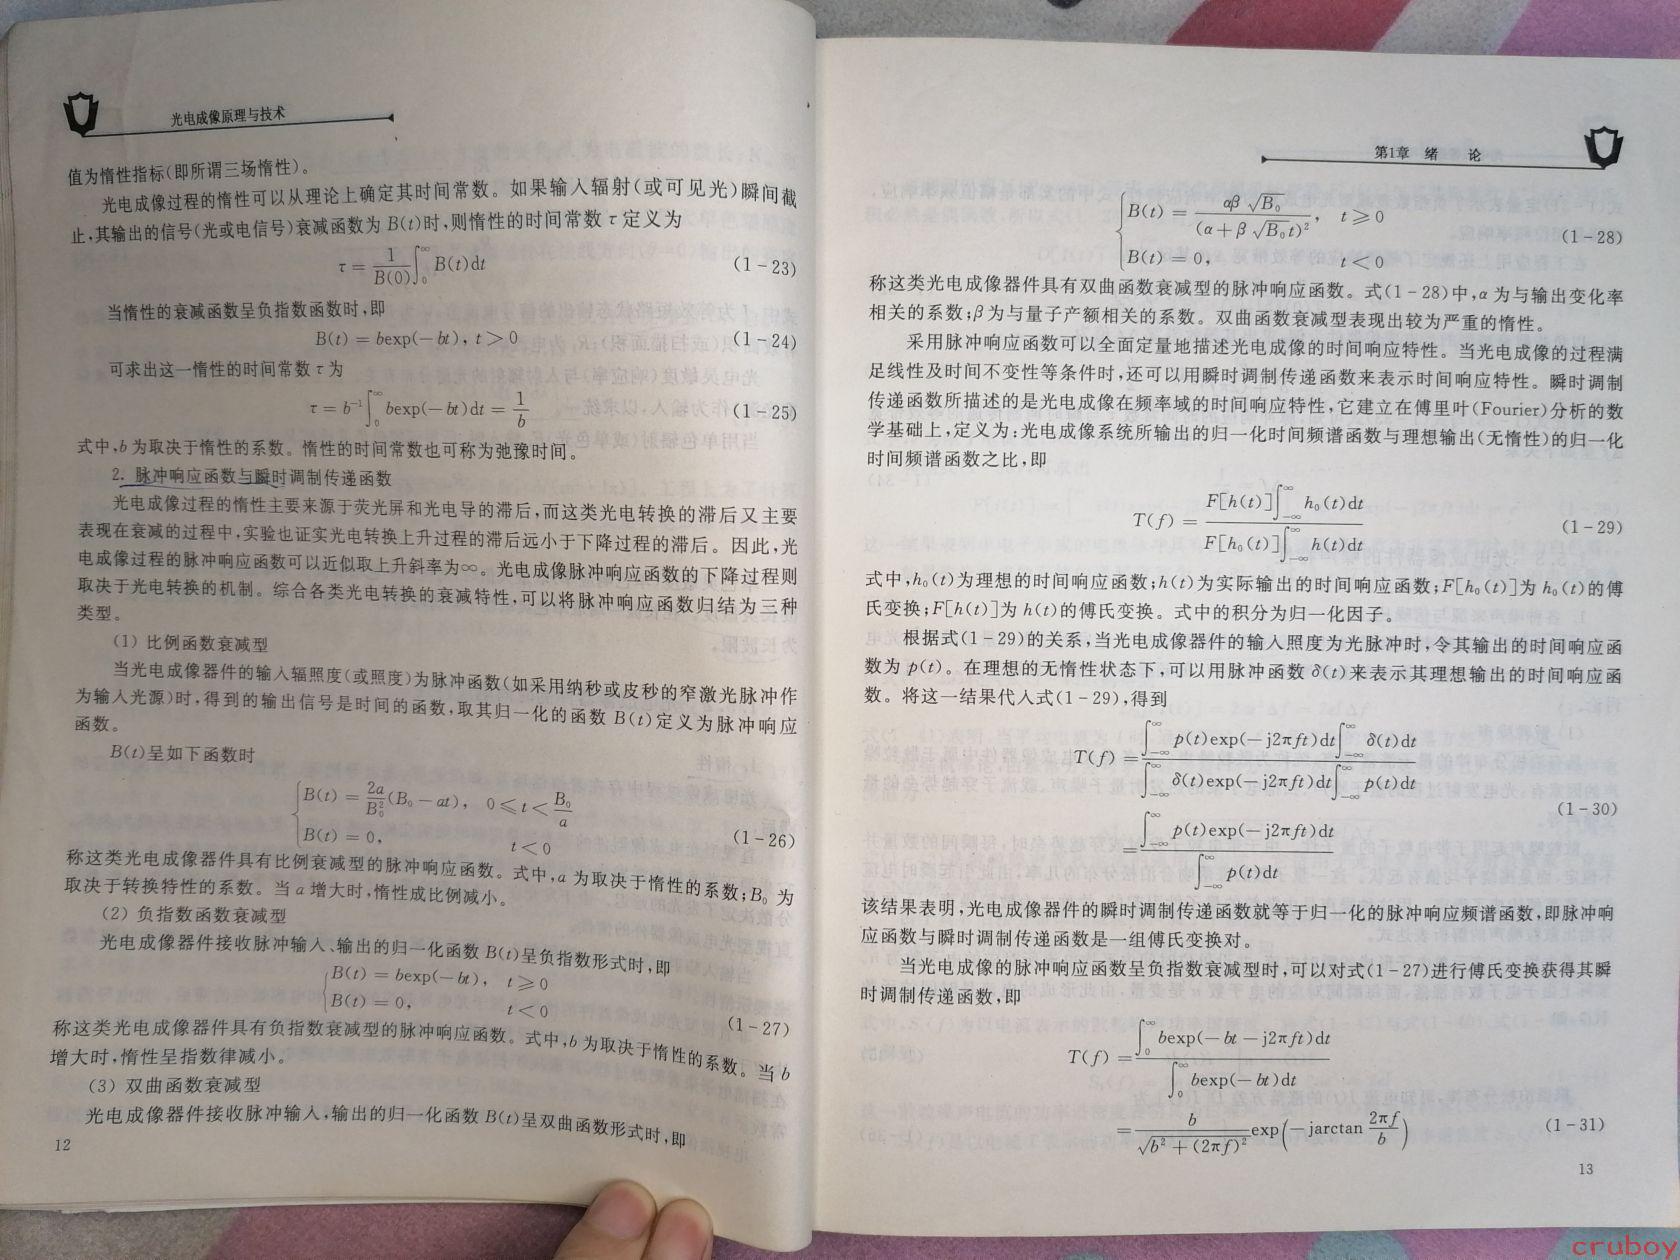 光电成像原理与技术
值为惰性指标(即所谓三场惰性)。
光电成像过程的惰性可以从理论上确定其时间常数。如果输入辐射(或可见光)瞬间截
止,其输出的信号(光或电信号)衰减函数为 B(t)时,则惰性的时间常数 τ 定义为
τ = 1/B(0) ∫₀^∞ B(t)dt (1-23)
当惰性的衰减函数呈负指数函数时,即
B(t) = bexp(-bt), t>0 (1-24)
可求出这一惰性的时间常数 τ 为
τ = b⁻¹ ∫₀^∞ bexp(-bt)dt = 1/b (1-25)
式中,b 为取决于惰性的系数。惰性的时间常数也可称为弛豫时间。
2. 脉冲响应函数与瞬时调制传递函数
光电成像过程的惰性主要来源于荧光屏和光电导的滞后,而这类光电转换的滞后又主要
表现在衰减的过程中,实验也证实光电转换上升过程的滞后远小于下降过程的滞后。因此,光
电成像过程的脉冲响应函数可以近似取上升斜率为∞。光电成像脉冲响应函数的下降过程则
取决于光电转换的机制。综合各类光电转换的衰减特性,可以将脉冲响应函数归结为三种
类型。
(1) 比例函数衰减型
当光电成像器件的输入辐照度(或照度)为脉冲函数(如采用纳秒或皮秒的窄激光脉冲作
为输入光源)时,得到的输出信号是时间的函数,取其归一化的函数 B(t)定义为脉冲响应
函数。
B(t)呈如下函数时
B(t) = 2a/B₀² (B₀-at), 0≤t<B₀/a
B(t) = 0, t<0 (1-26)
称这类光电成像器件具有比例衰减型的脉冲响应函数。式中,a 为取决于惰性的系数;B₀ 为
取决于转换特性的系数。当 a 增大时,惰性成比例减小。
(2) 负指数函数衰减型
光电成像器件接收脉冲输入、输出的归一化函数 B(t)呈负指数形式时,即
B(t) = bexp(-bt), t≥0
B(t) = 0, t<0 (1-27)
称这类光电成像器件具有负指数衰减型的脉冲响应函数。式中,b 为取决于惰性的系数。当 b
增大时,惰性呈指数律减小。
(3) 双曲函数衰减型
光电成像器件接收脉冲输入,输出的归一化函数 B(t)呈双曲函数形式时,即
12
第1章 绪 论
B(t) = αβ√B₀/(α+β√B₀t)², t≥0
B(t) = 0, t<0 (1-28)
称这类光电成像器件具有双曲函数衰减型的脉冲响应函数。式(1-28)中,α 为与输出变化率
相关的系数;β 为与量子产额相关的系数。双曲函数衰减型表现出较为严重的惰性。
采用脉冲响应函数可以全面定量地描述光电成像的时间响应特性。当光电成像的过程满
足线性及时间不变性等条件时,还可以用瞬时调制传递函数来表示时间响应特性。瞬时调制
传递函数所描述的是光电成像在频率域的时间响应特性,它建立在傅里叶(Fourier)分析的数
学基础上,定义为:光电成像系统所输出的归一化时间频谱函数与理想输出(无惰性)的归一化
时间频谱函数之比,即
T(f) = F[h(t)]∫₋∞^∞ h₀(t)dt / F[h₀(t)]∫₋∞^∞ h(t)dt (1-29)
式中,h₀(t)为理想的时间响应函数;h(t)为实际输出的时间响应函数;F[h₀(t)]为 h₀(t)的傅
氏变换;F[h(t)]为 h(t)的傅氏变换。式中的积分为归一化因子。
根据式(1-29)的关系,当光电成像器件的输入照度为光脉冲时,令其输出的时间响应函
数为 p(t)。在理想的无惰性状态下,可以用脉冲函数 δ(t)来表示其理想输出的时间响应函
数。将这一结果代入式(1-29),得到
T(f) = ∫₋∞^∞ p(t)exp(-j2πft)dt ∫₋∞^∞ δ(t)dt / ∫₋∞^∞ δ(t)exp(-j2πft)dt ∫₋∞^∞ p(t)dt
= ∫₋∞^∞ p(t)exp(-j2πft)dt / ∫₋∞^∞ p(t)dt (1-30)
该结果表明,光电成像器件的瞬时调制传递函数就等于归一化的脉冲响应频谱函数,即脉冲响
应函数与瞬时调制传递函数是一组傅氏变换对。
当光电成像的脉冲响应函数呈负指数衰减型时,可以对式(1-27)进行傅氏变换获得其瞬
时调制传递函数,即
T(f) = ∫₀^∞ bexp(-bt-j2πft)dt / ∫₀^∞ bexp(-bt)dt
= b/√(b²+(2πf)²) exp(-jarctan 2πf/b) (1-31)
13
cruboy